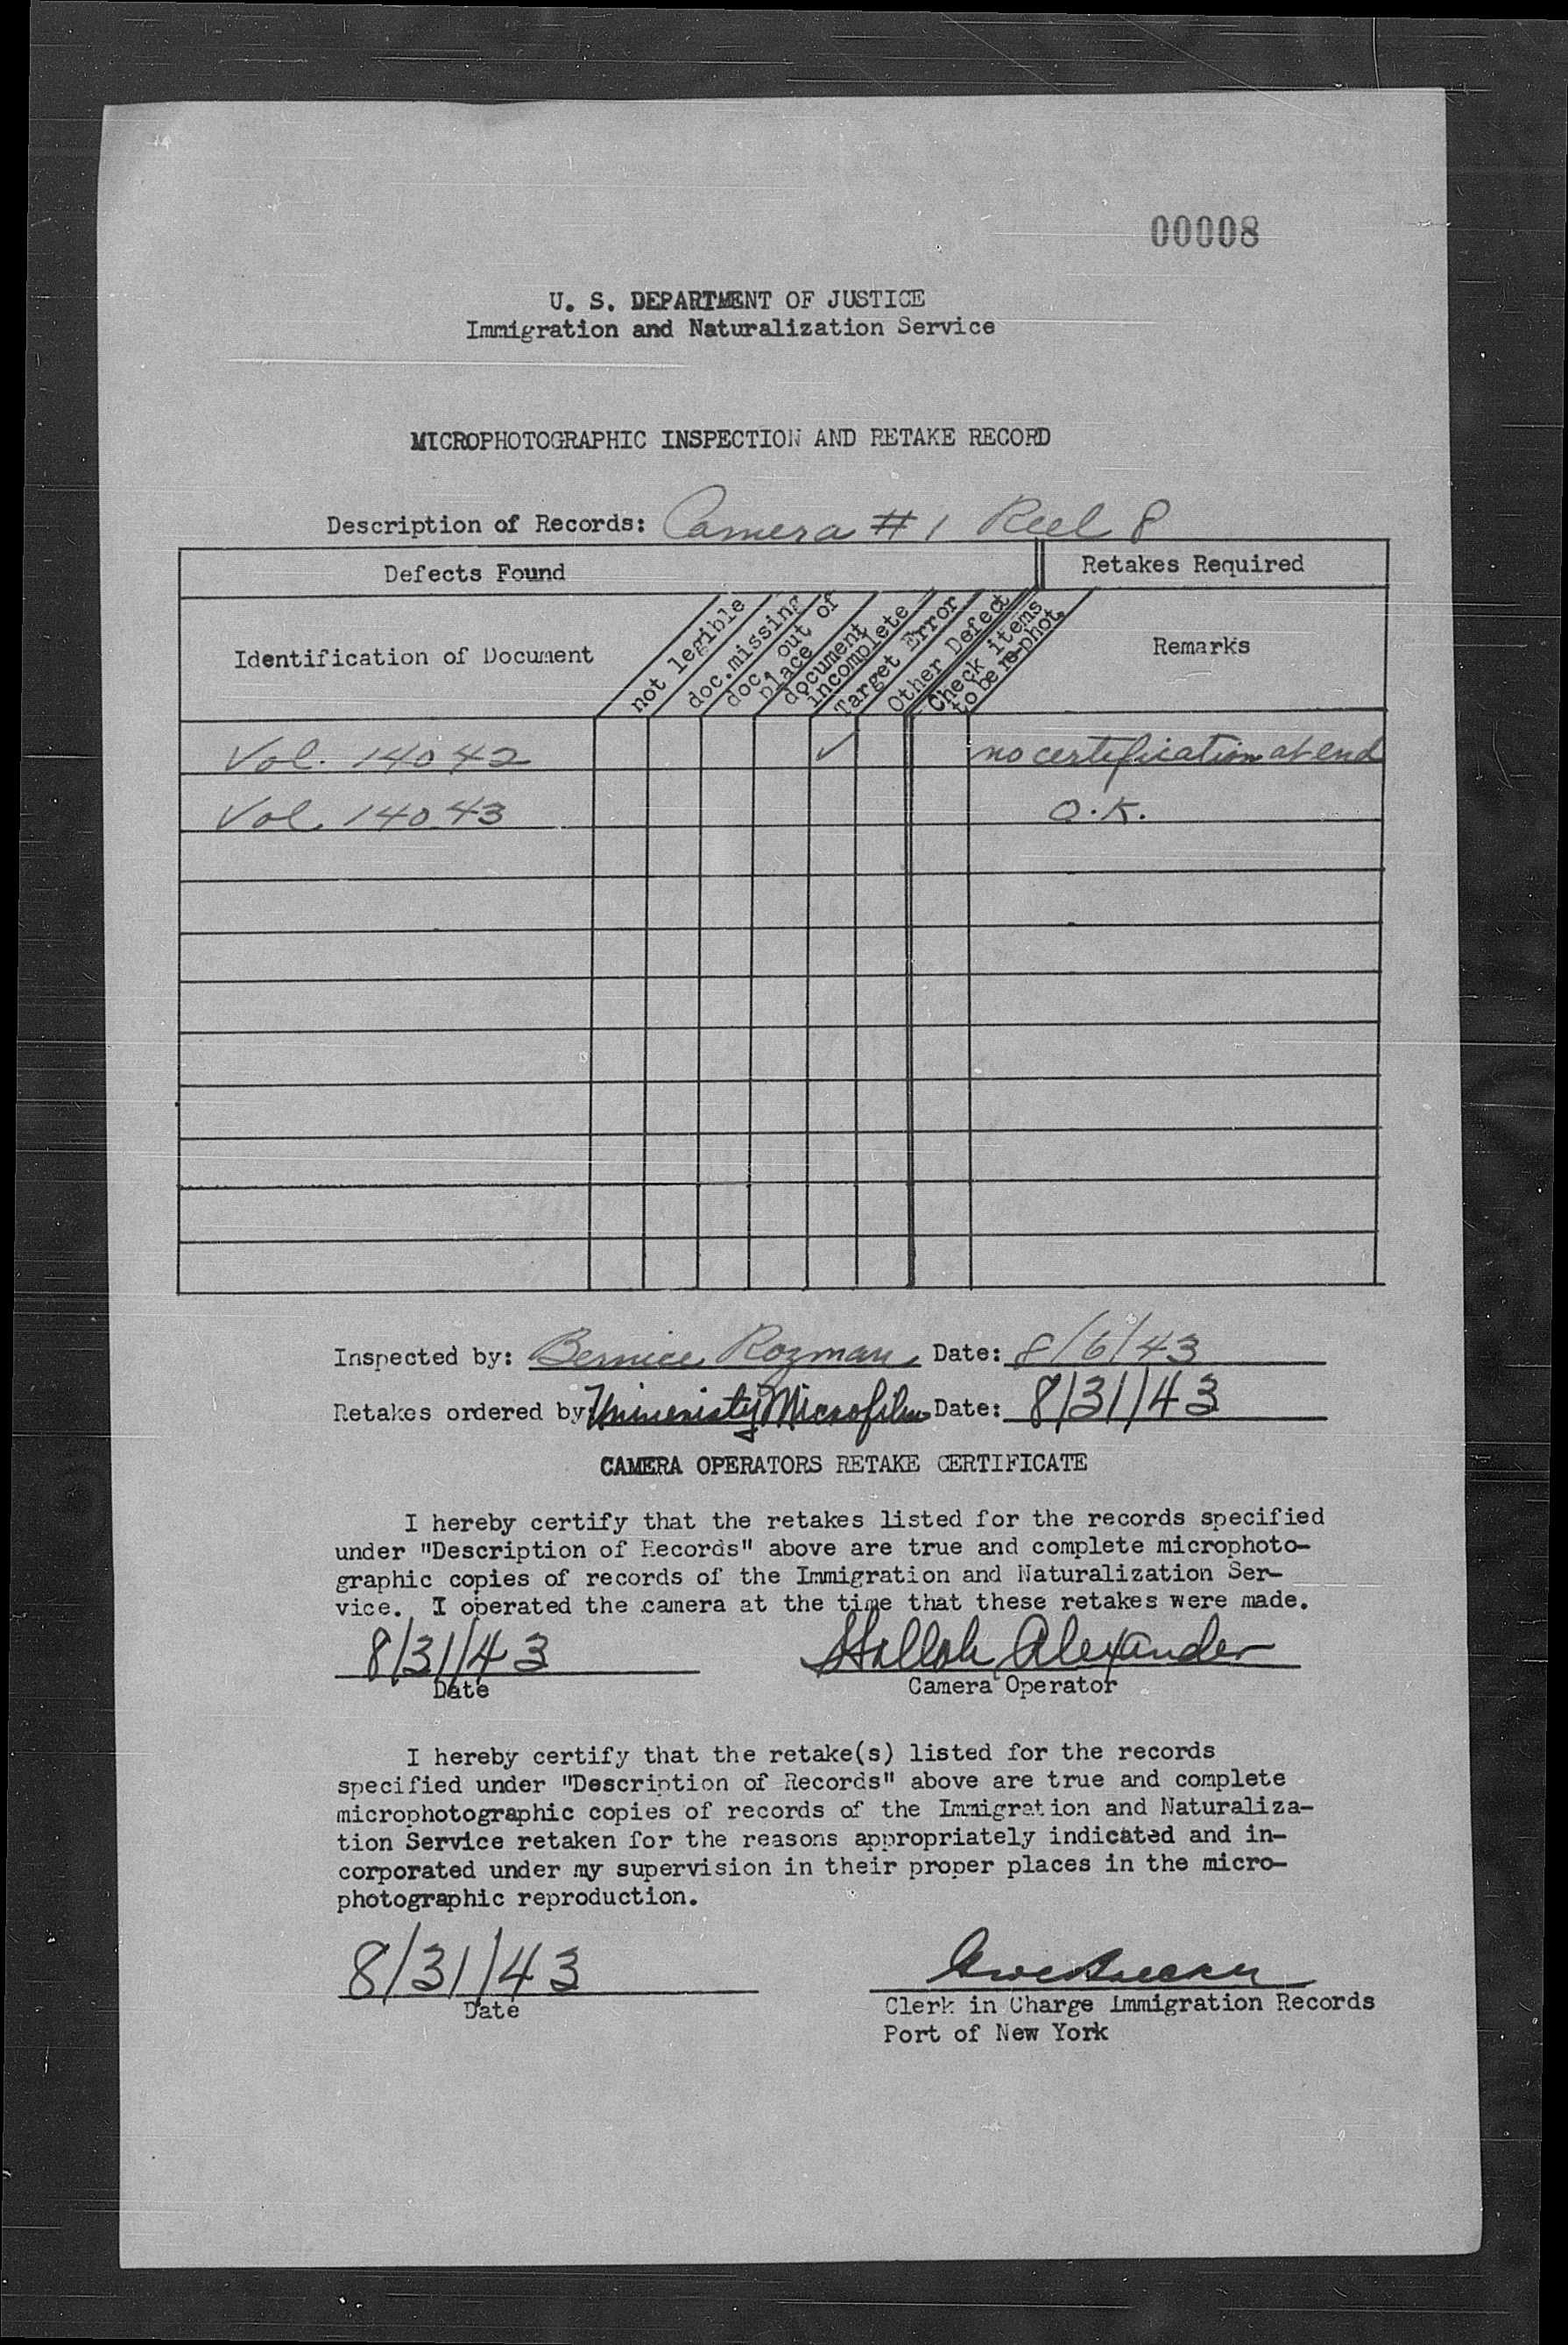 00008
U. S. DEPARTMENT OF JUSTICE
Immigration and Naturalization Service
MICROPHOTOGRAPHIC INSPECTION AND RETAKE RECORD
Description of Records: Camera # 1 Reel 8
Defects Found
Retakes Required
Identification of Document
not legible
doc. missing
doc. out of
place
document
incomplete
Target Error
Other Defect
Check items
to be re-phot.
Remarks
Vol. 14042 ✓ no certification at end
Vol. 14043 O.K.
Inspected by: Bernice Rozman Date: 8/6/43
Retakes ordered by: University Microfilms Date: 8/31/43
CAMERA OPERATORS RETAKE CERTIFICATE
I hereby certify that the retakes listed for the records specified
under "Description of Records" above are true and complete microphoto-
graphic copies of records of the Immigration and Naturalization Ser-
vice. I operated the camera at the time that these retakes were made.
8/31/43 Alexander
Date Camera Operator
I hereby certify that the retake(s) listed for the records
specified under "Description of Records" above are true and complete
microphotographic copies of records of the Immigration and Naturaliza-
tion Service retaken for the reasons appropriately indicated and in-
corporated under my supervision in their proper places in the micro-
photographic reproduction.
8/31/43
Date
Clerk in Charge Immigration Records
Port of New York